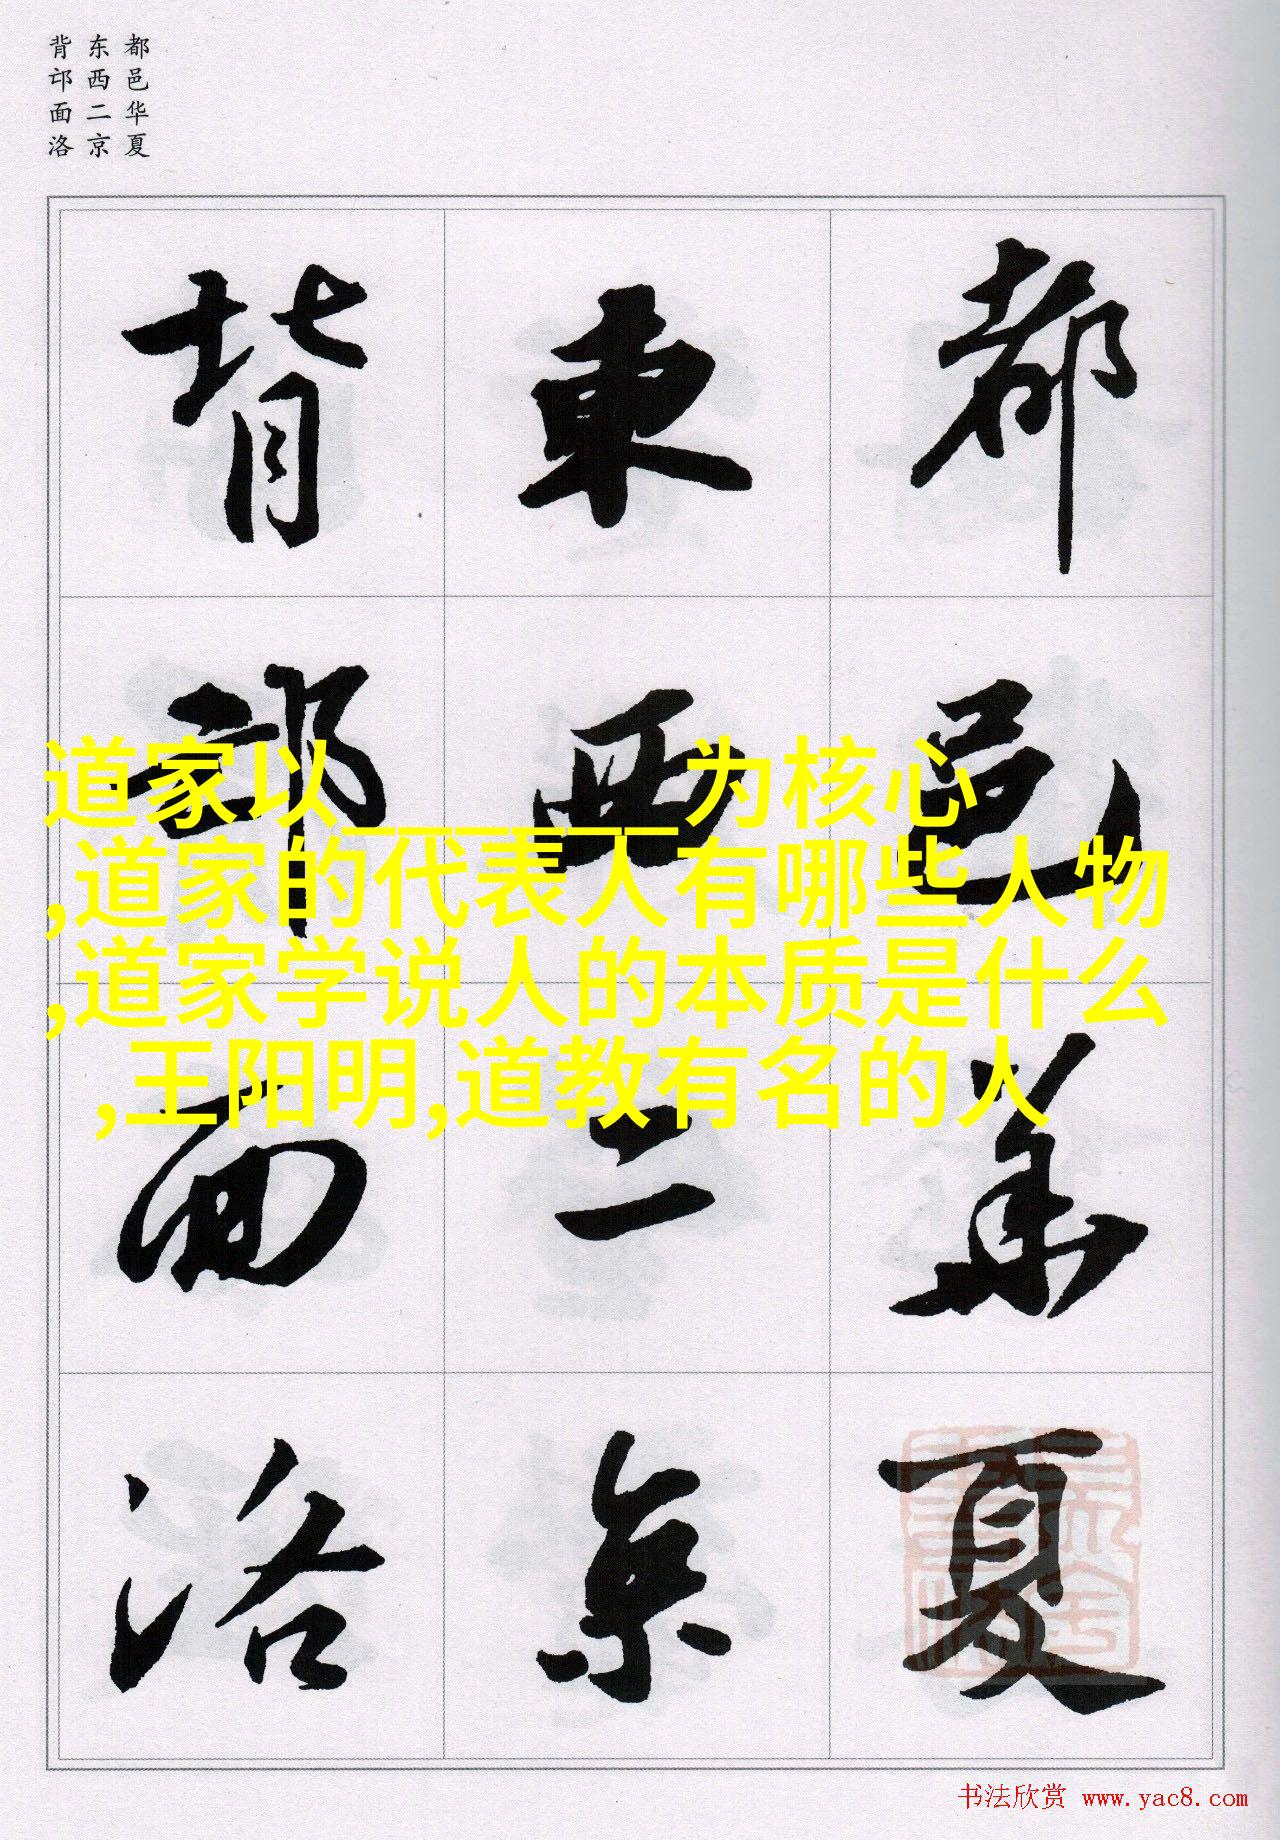 都邑华夏
东西二京
背邙面洛
都邑華夏
東西二京
背邙面洛
道家以________为核心
,道家的代表人有哪些人物
,道家学说人的本质是什么
,王阳明,道教有名的人
书法欣赏 www.yac8.com